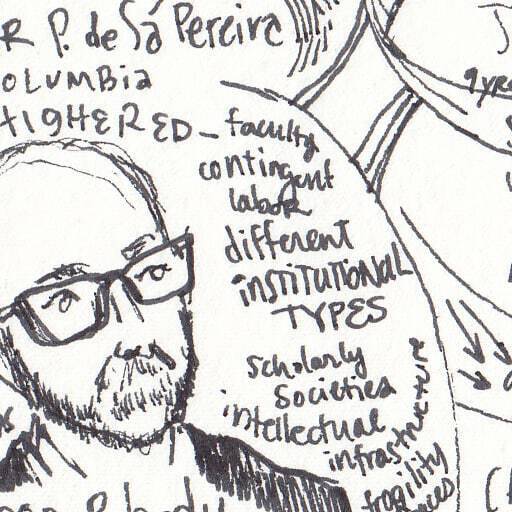 R P. de Sá Pereira
OLUMBIA
HIGHER ED – faculty
contingent
labor
different
INSTITUTIONAL
TYPES
scholarly
Societies
intellectual
infrastructure
fragility